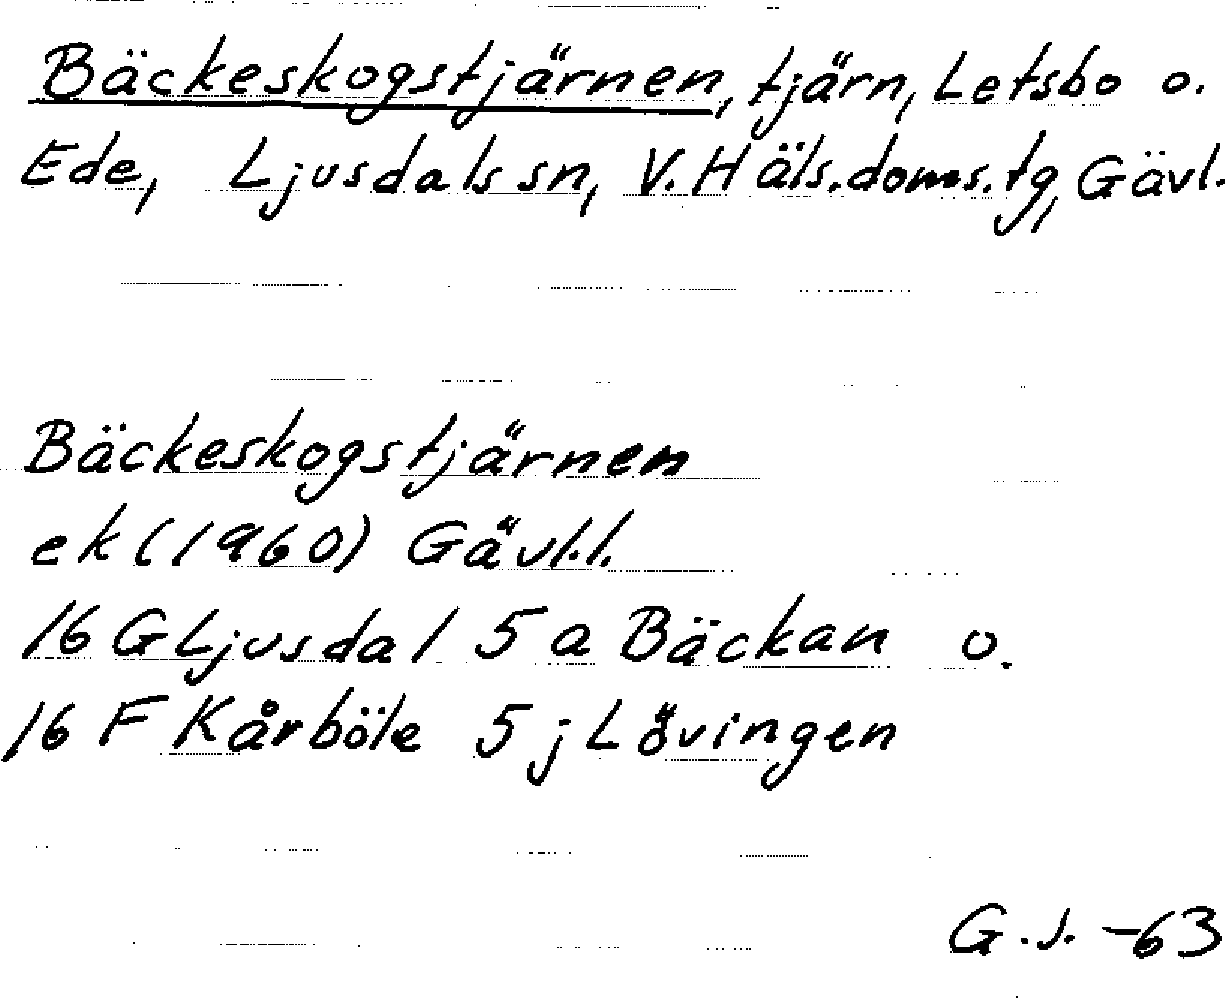 Bäckeskogstjärnen, tjärn, Letsbo o.
Ede, Ljusdals sn, V. Häls. doms. tg, Gävl.
Bäckeskogstjärnen
ek (1960) Gävl.l.
16 G Ljusdal 5 a Bäckan o.
16 F Kårböle 5 j Lövingen
G.J. -63